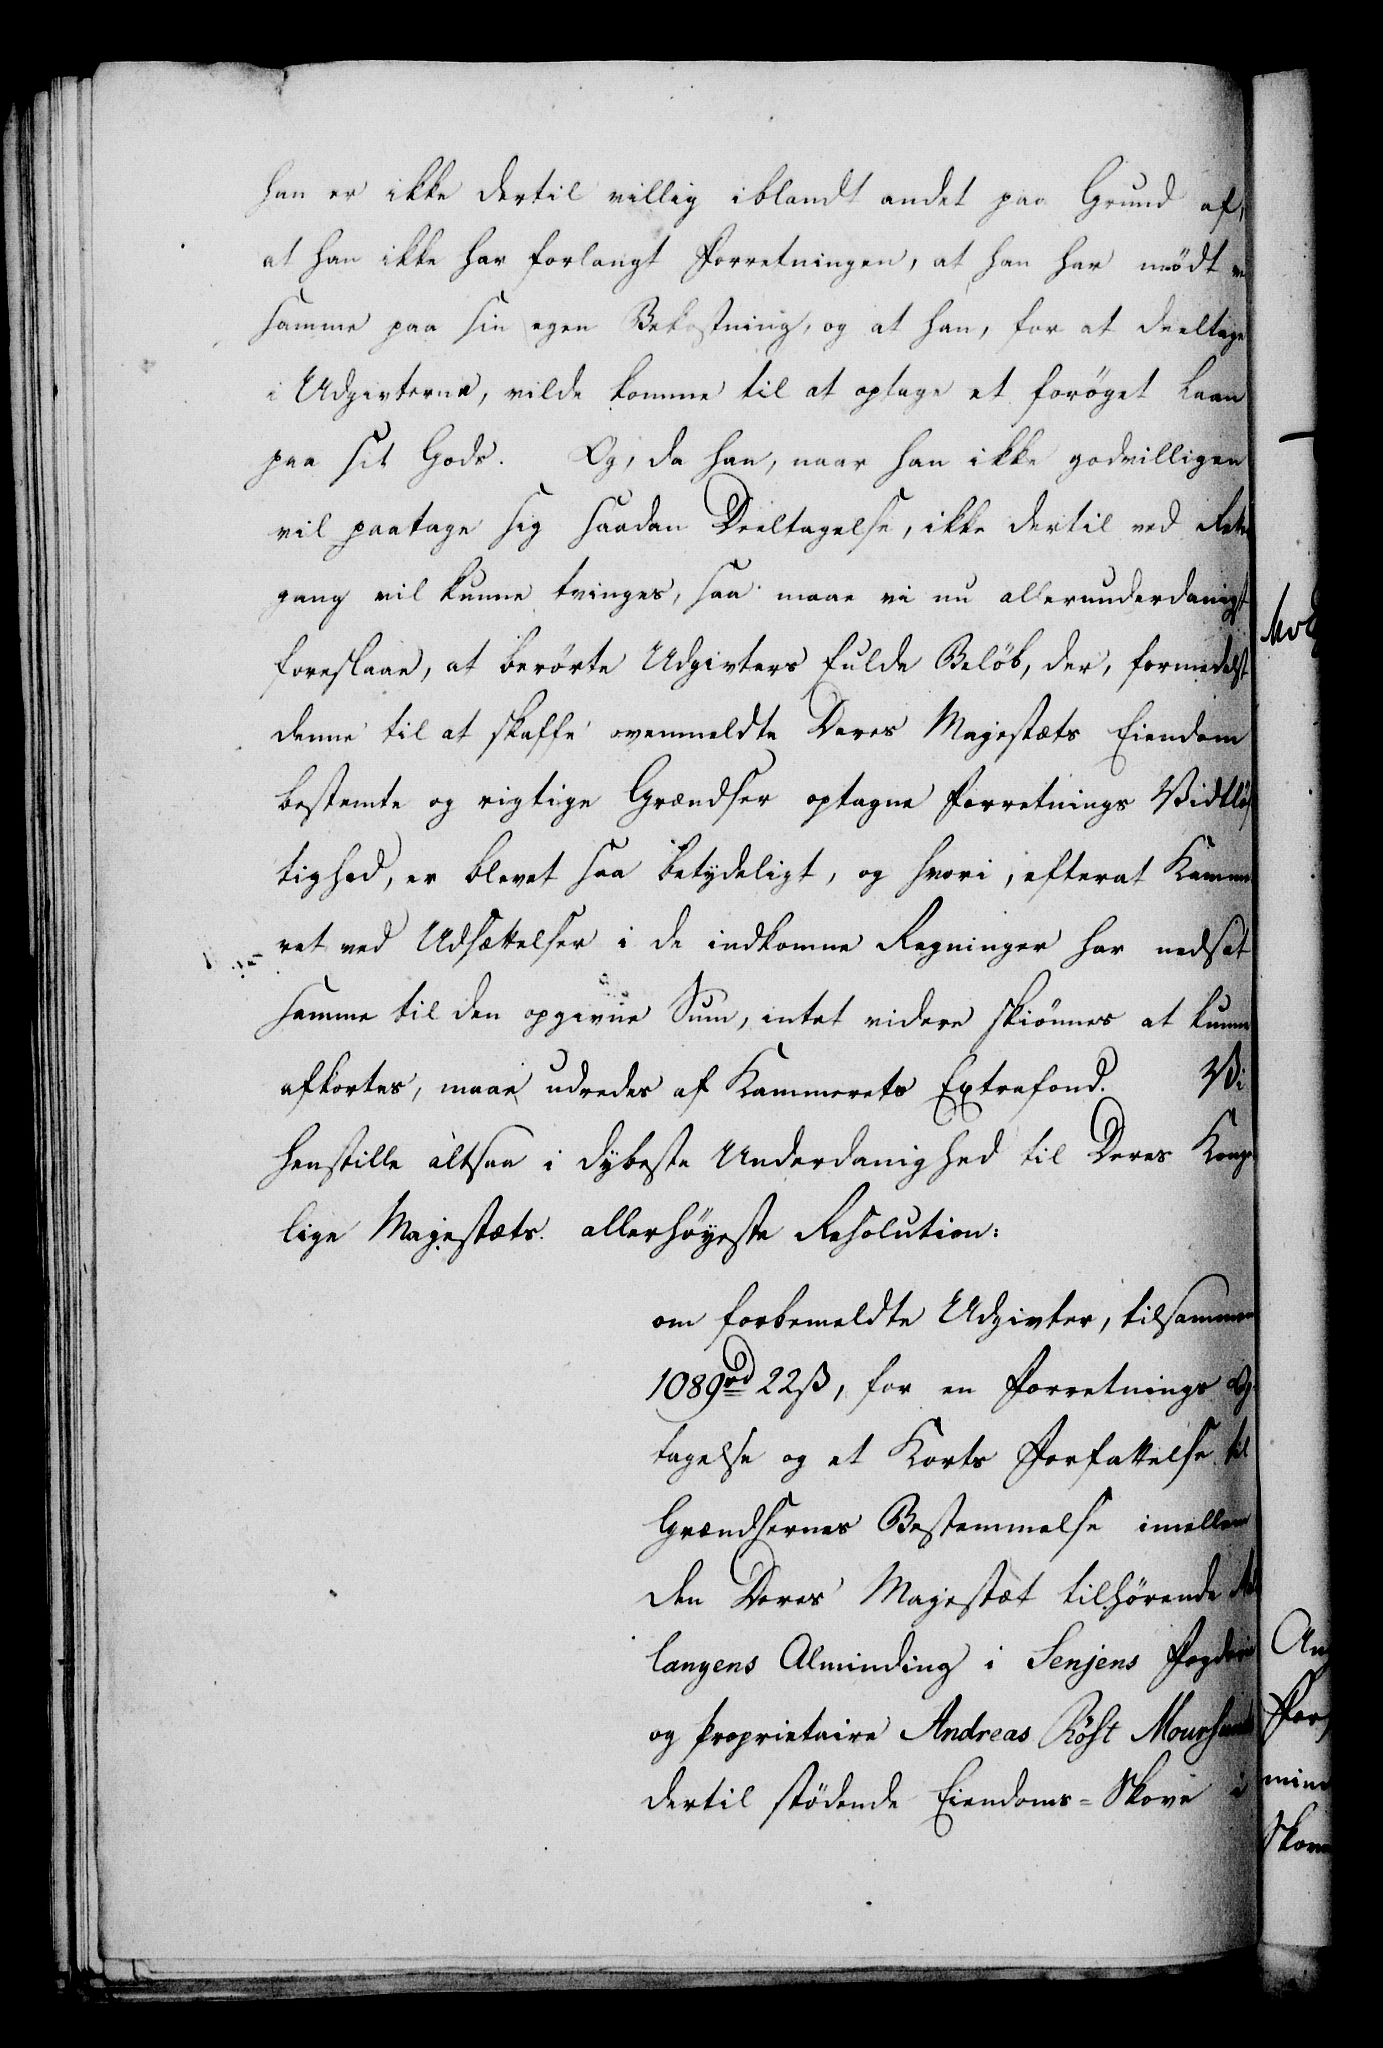 han er ikke dertil villig iblandt andet paa Grund af,
at han ikke har forlangt Forretningen, at han har mødt
samme paa sin egen Bekostning, og at han, for at deeltage
i Udgivterne, vilde komme til at optage et forøget Laan
paa sit Gods. Og, da han, naar han ikke godvilligen
vil paatage sig saadan Deeltagelse, ikke dertil ved Rete
gang vil kunne tvinges, saa maae vi nu allerunderdanigst
foreslaae, at berørte Udgivters fulde Beløb, der, formedelst
denne til at skaffe ovenmeldte Deres Majestæts Eiendom
bestemte og rigtige Grændser optagne Forretnings Vidtløf
tighed, er blevet saa betydeligt, og hvori, efterat Kamme
ret ved Udsættelser i de indkomne Regninger har nedsat
samme til den opgivne Sum, intet videre skiønnes at kunne
afkortes, maae udredes af Kammerets Extrafond. Vi
henstille altsaa i dybeste Underdanighed til Deres Konge
lige Majestæts allerhøyeste Resolution:
om forbemeldte Udgivter, tilsammen
1089rd 22ß, for en Forretnings Op
tagelse og et Korts Forfattelse til
Grændsernes Bestemmelse imellem
den Deres Majestæt tilhørende
langens Alminding i Senjens Fogderie
og Proprietaire Andreas Röst Moursund
dertil stødende Eiendoms=Skove i